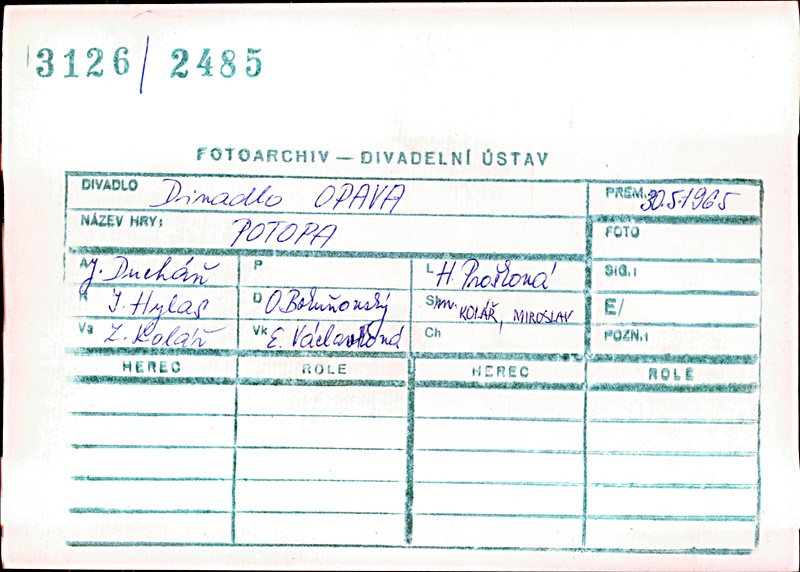 3126/ 2485
FOTOARCHIV — DIVADELNÍ ÚSTAV
DIVADLO Divadlo OPAVA PREM. 30.5.1965
NÁZEV HRY: POTOPA FOTO
A J. Ducháň P L H. Prošková SIG.:
R J. Hylas D O. Batuňonský Sm. KOLÁŘ, MIROSLAV E/
Vs Z. Kolář Vk E. Václavková Ch POZN.:
HEREC ROLE HEREC ROLE